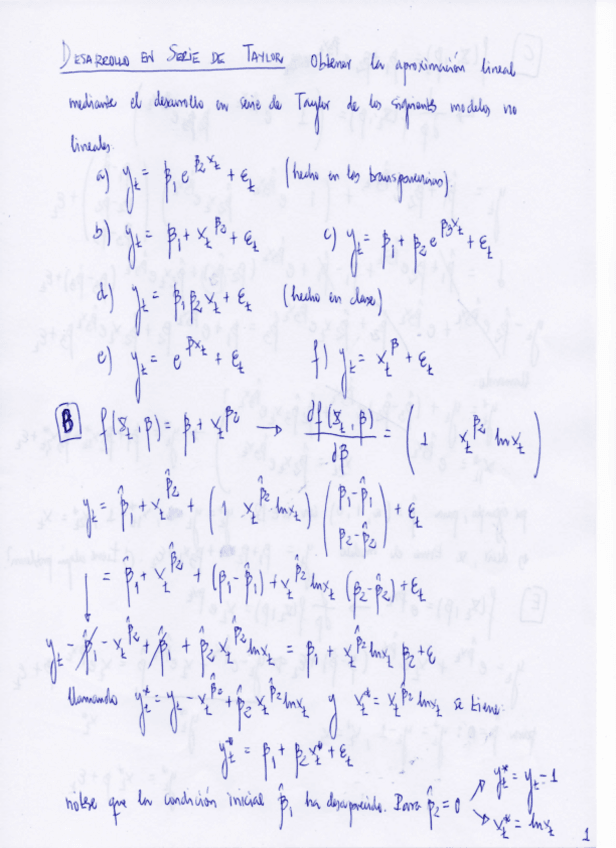 DESARROLLO EN SERIE DE TAYLOR Obtener la aproximación lineal
mediante el desarrollo en serie de Taylor de los siguientes modelos no
lineales.
a) y_t = β_1 e^{β_2 x_t} + ε_t (hecho en las transparencias)
b) y_t = β_1 + x_t^{β_2} + ε_t c) y_t = β_1 + β_2 e^{β_3 x_t} + ε_t
d) y_t = β_1 β_2 x_t + ε_t (hecho en clase)
e) y_t = e^{β x_t} + ε_t f) y_t = x_t^β + ε_t
B f(X_t, β) = β_1 + x_t^{β_2} → ∂f(X_t, β)/∂β = (1 x_t^{β_2} ln x_t)
y_t = β̂_1 + x_t^{β̂_2} + (1 x_t^{β̂_2} · ln x_t) (β_1 - β̂_1 β_2 - β̂_2) + ε_t
= β̂_1 + x_t^{β̂_2} + (β_1 - β̂_1) + x_t^{β̂_2} ln x_t (β_2 - β̂_2) + ε_t
y_t - β̂_1 - x_t^{β̂_2} + β̂_1 + β̂_2 x_t^{β̂_2} ln x_t = β_1 + x_t^{β̂_2} ln x_t β_2 + ε
llamando y_t^* = y_t - x_t^{β̂_2} + β̂_2 x_t^{β̂_2} ln x_t y x_t^* = x_t^{β̂_2} ln x_t se tiene:
y_t^* = β_1 + β_2 x_t^* + ε_t
nótese que la condición inicial β̂_1 ha desaparecido. Para β̂_2 = 0 → y_t^* = y_t - 1
→ x_t^* = ln x_t
1